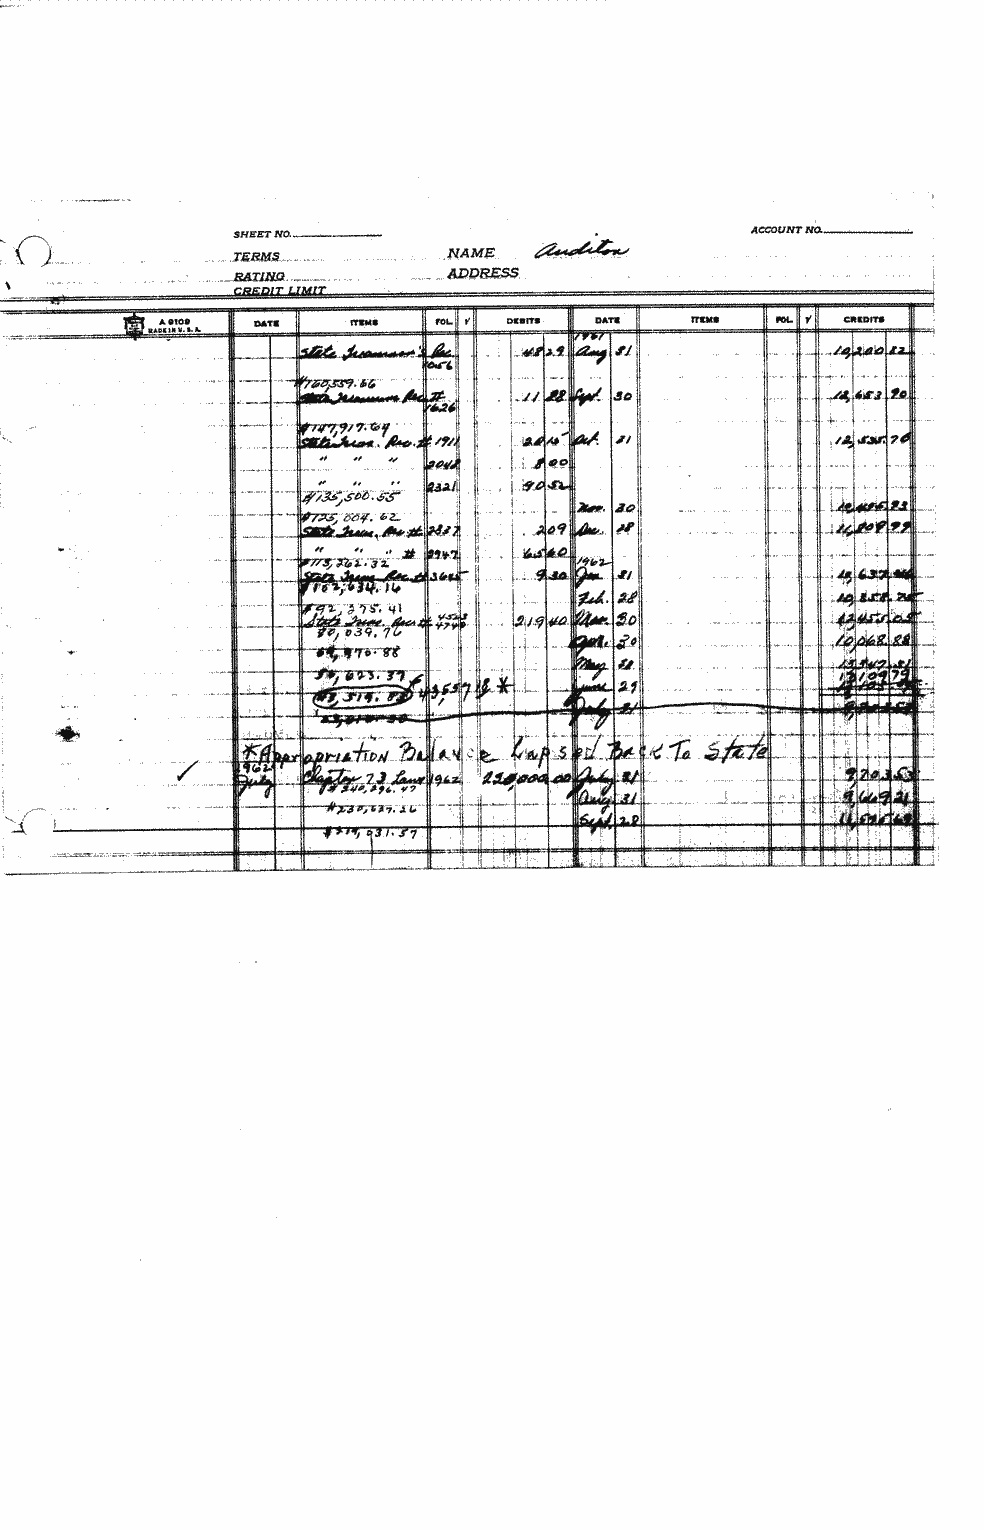 SHEET NO. ACCOUNT NO.
TERMS NAME Auditor
RATING ADDRESS
CREDIT LIMIT
A 9109 MADE IN U.S.A. DATE ITEMS FOL. √ DEBITS DATE ITEMS FOL. √ CREDITS
1961
State Treasurer's Rec 1056 48 29 Aug 31 10,200 82
$160,539.66
State Treasurers Rec # 1626 11 28 Sept. 30 12,653 90
$147,917.04
State Treas. Rec. # 1911 20 15 Oct. 31 12,535.70
" " " 2048 8 00
" " " 2321 90 52
$135,500.55
Nov. 30
$125,004.62
State Treas. Rec # 2837 2 09 Dec. 28 11,809 99
" " " # 2947 65 60
$113,262.32 1962
State Treas Rec. # 3685 9 30 Jan 31
$102,634.16
Feb. 28 10,258.75
$92,375.41
State Treas. Rec # 4523 4740 219 40 Mar. 30 12,455.05
80,039.76
Apr. 30 10,068.88
May 31
June 29 13,109 79
43,557 18 *
July 31
* Appropriation Balance Lapsed Back To State
1962
July Chapter 73 Laws 1962 250,000.00 July 31 9,703 53
$240,296.47
Aug 31 9,669 21
$230,627.26
Sept. 28 11,595 69
$219,031.57